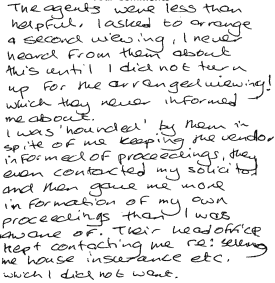 The agents were less than
helpful. I asked to arrange
a second viewing, I never
heard from them about
this until I did not turn
up for the arranged viewing!
which they never informed
me about.
I was 'hounded' by them in
spite of me keeping the vendor
informed of proceedings, they
even contacted my solicitor
and then gave me more
information of my own
proceedings than I was
aware of. Their head office
kept contacting me re: selling
me house insurance etc.
which I did not want.